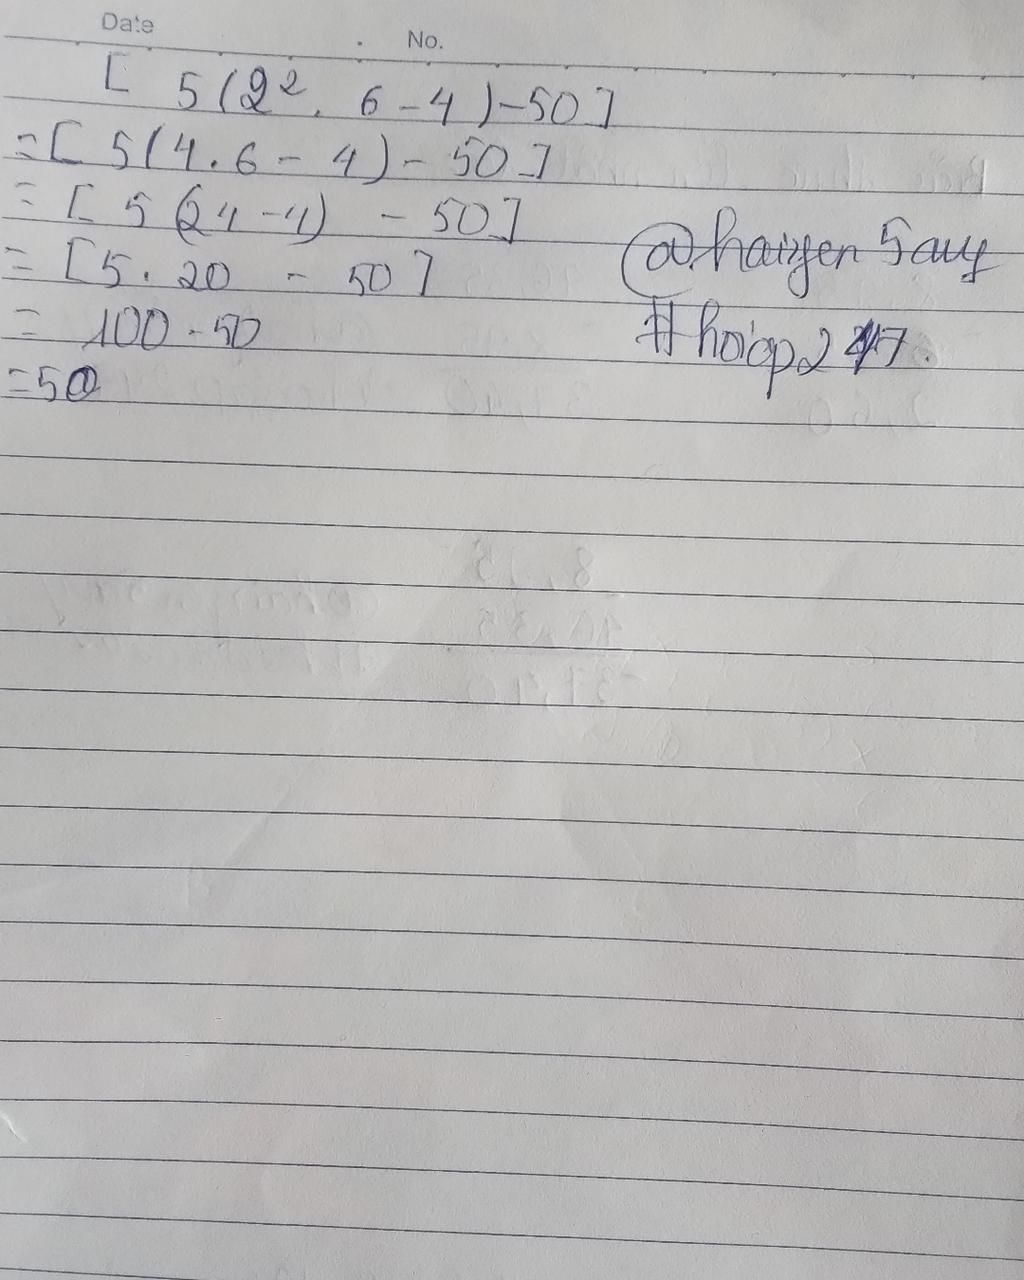 Date No.
[ 5(2². 6-4)-50]
=[ 5(4.6- 4)- 50]
= [ 5 (24-4) - 50]
= [5. 20 - 50]
= 100-50
=50
#hoiđap247.